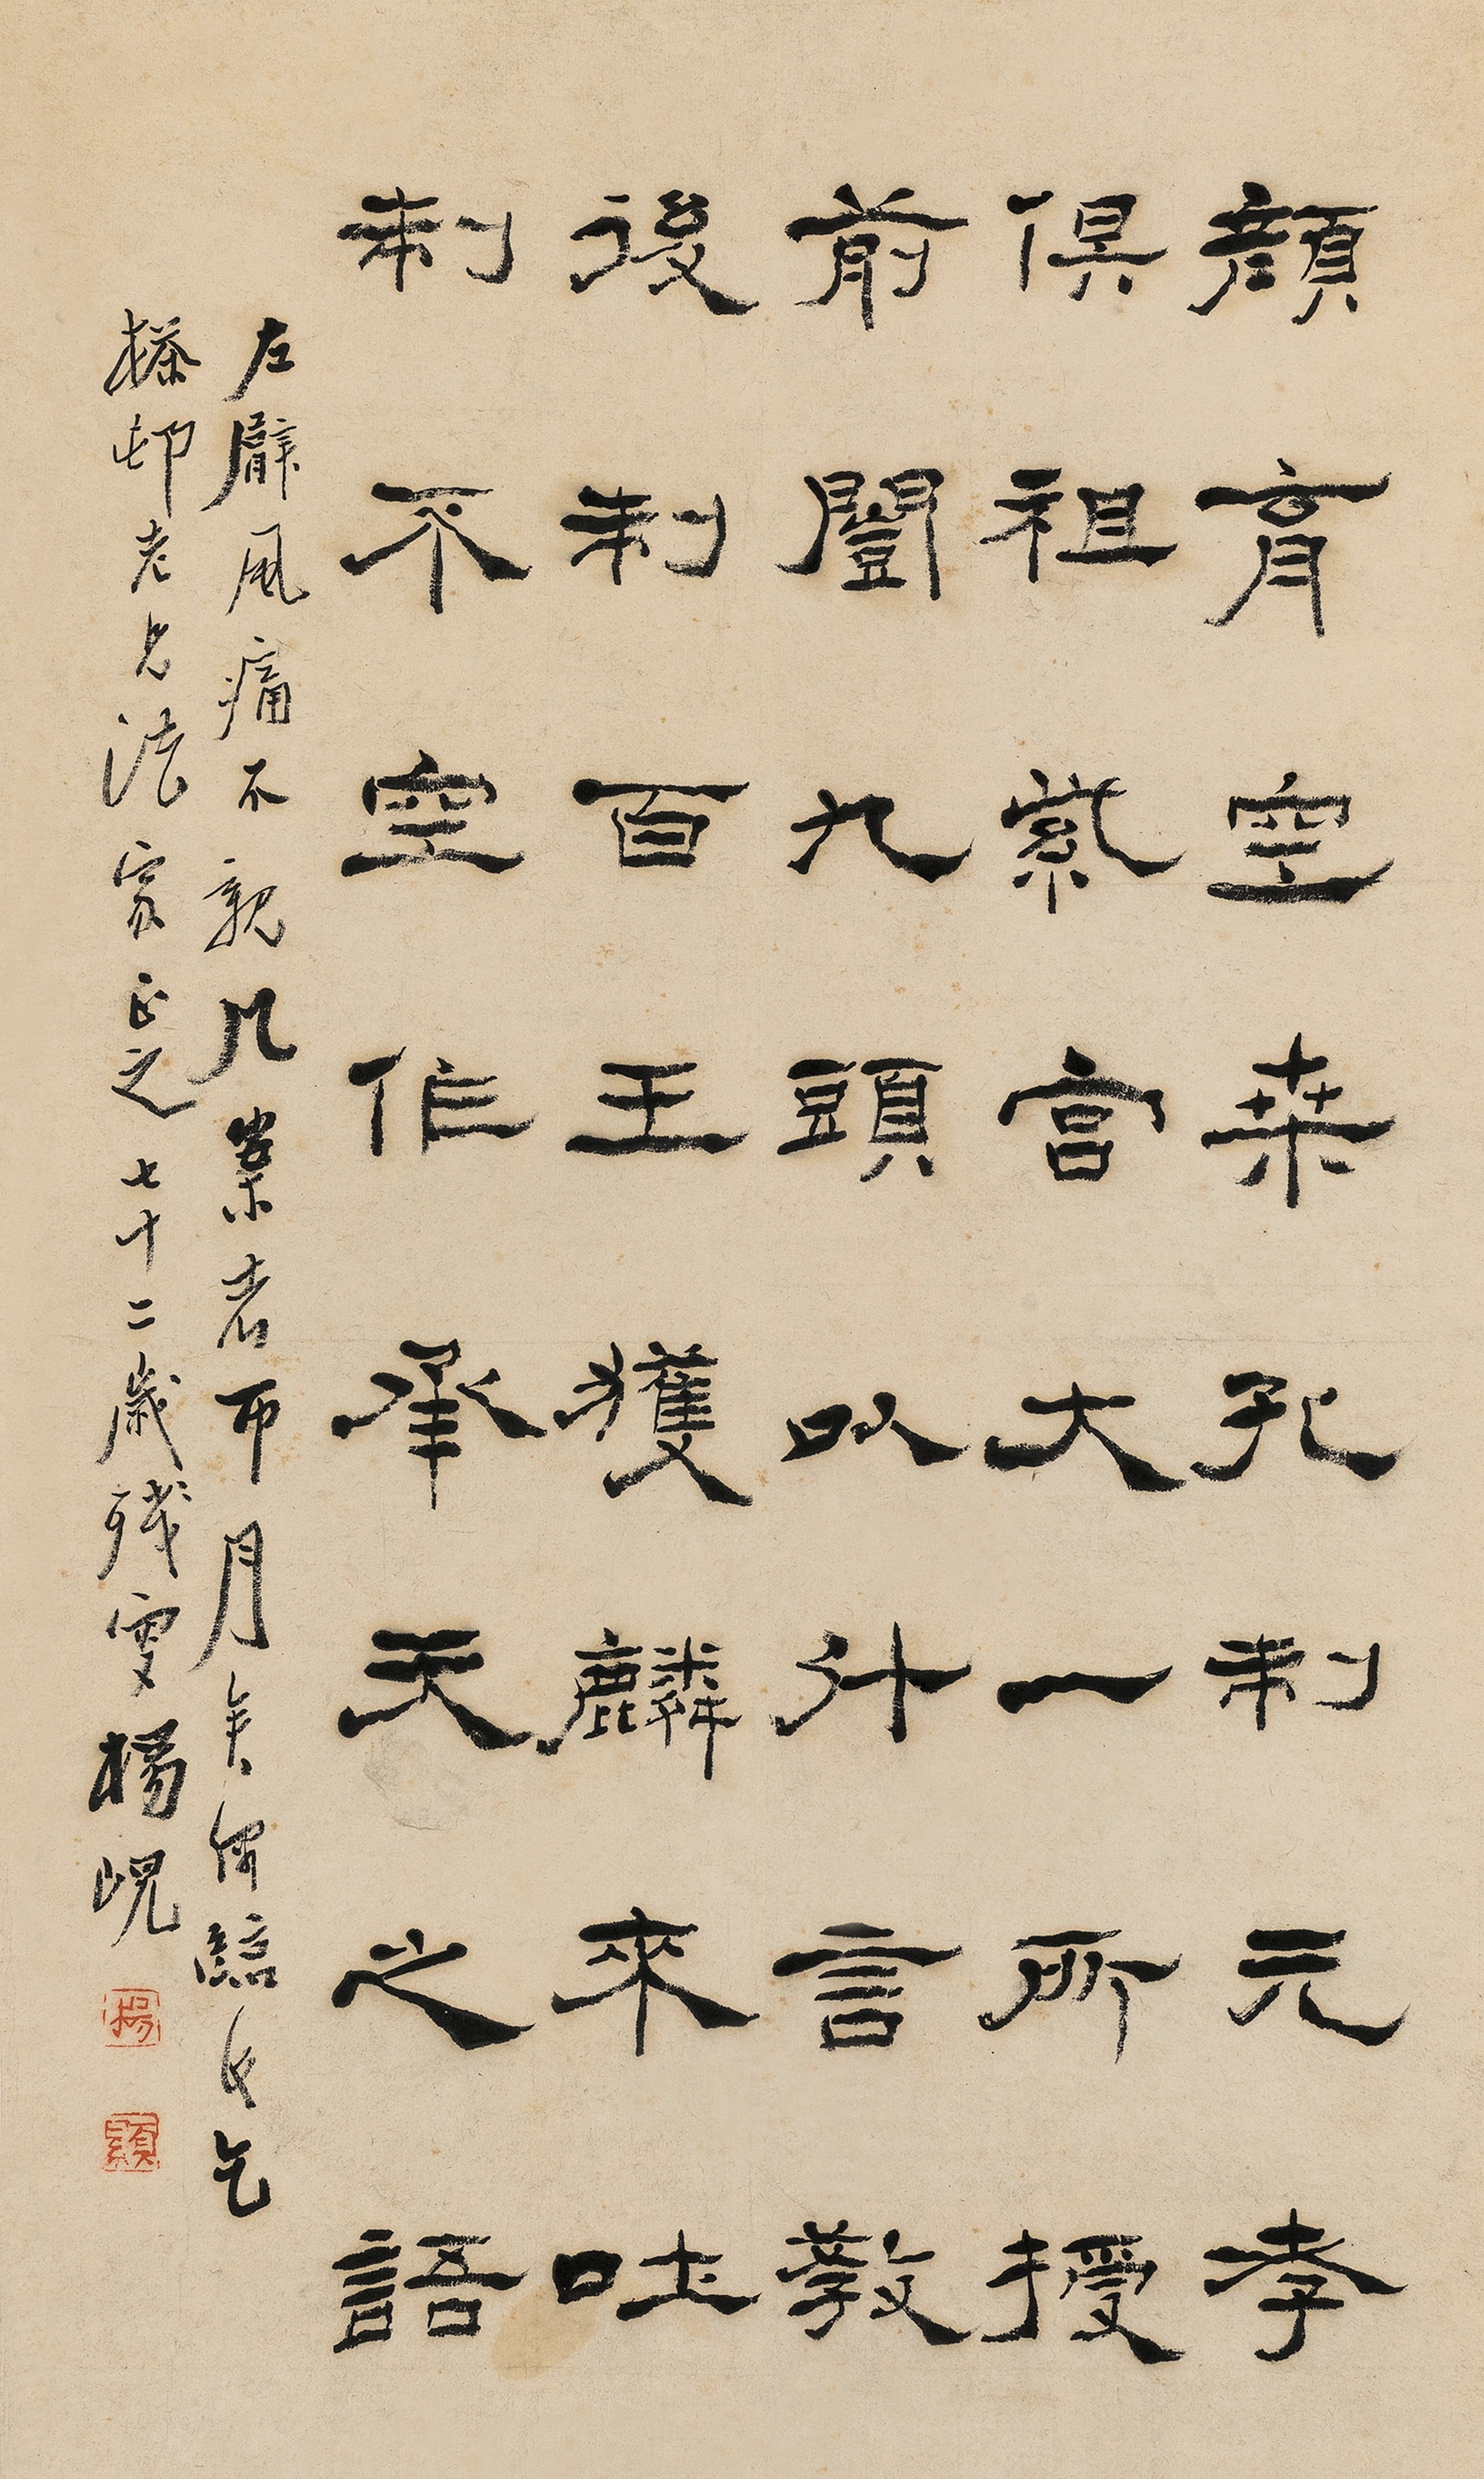 顏育空桑孔制元孝
俱祖紫宮大一所授
前闓九頭以升言教
後制百王獲麟來吐
制不空作承天之語
左臂風痛不親几案者帀月矣偶臨此乞
邨老兄法家正之七十二歲殘叟楊峴
楊
顯